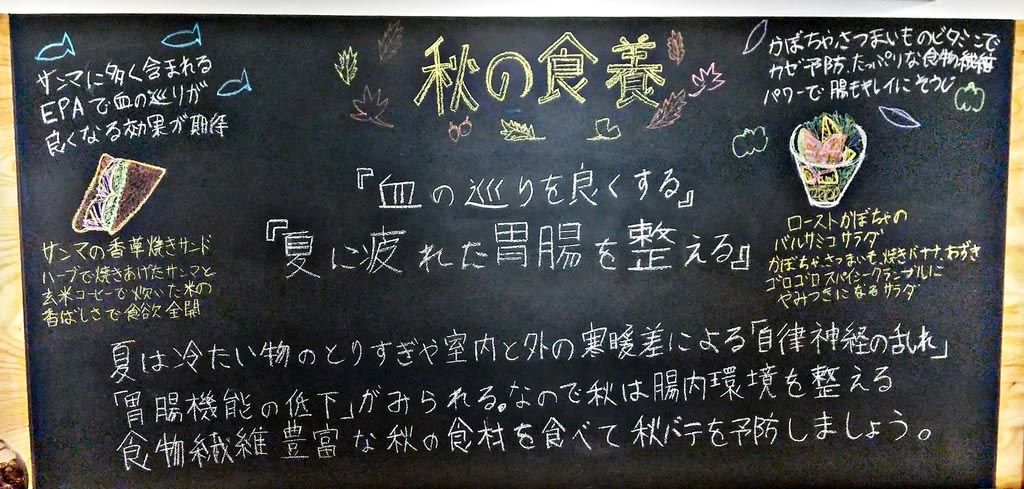 秋の食養
サンマに多く含まれる
EPAで血の巡りが
良くなる効果が期待
サンマの香草焼きサンド
ハーブで焼きあげたサンマと
玄米コーヒーで炊いた米の
香ばしさで食欲全開
『血の巡りを良くする』
『夏に疲れた胃腸を整える』
かぼちゃ、さつまいものビタミンで
カゼ予防、たっぷりな食物繊維
パワーで腸もキレイにそうじ
ローストかぼちゃの
バルサミコサラダ
かぼちゃ、さつまいも、焼きバナナ、あずき
ゴロゴロスパイシークランブルに
やみつきになるサラダ
夏は冷たい物のとりすぎや室内と外の寒暖差による「自律神経の乱れ」
「胃腸機能の低下」がみられる。なので秋は腸内環境を整える
食物繊維豊富な秋の食材を食べて秋バテを予防しましょう。